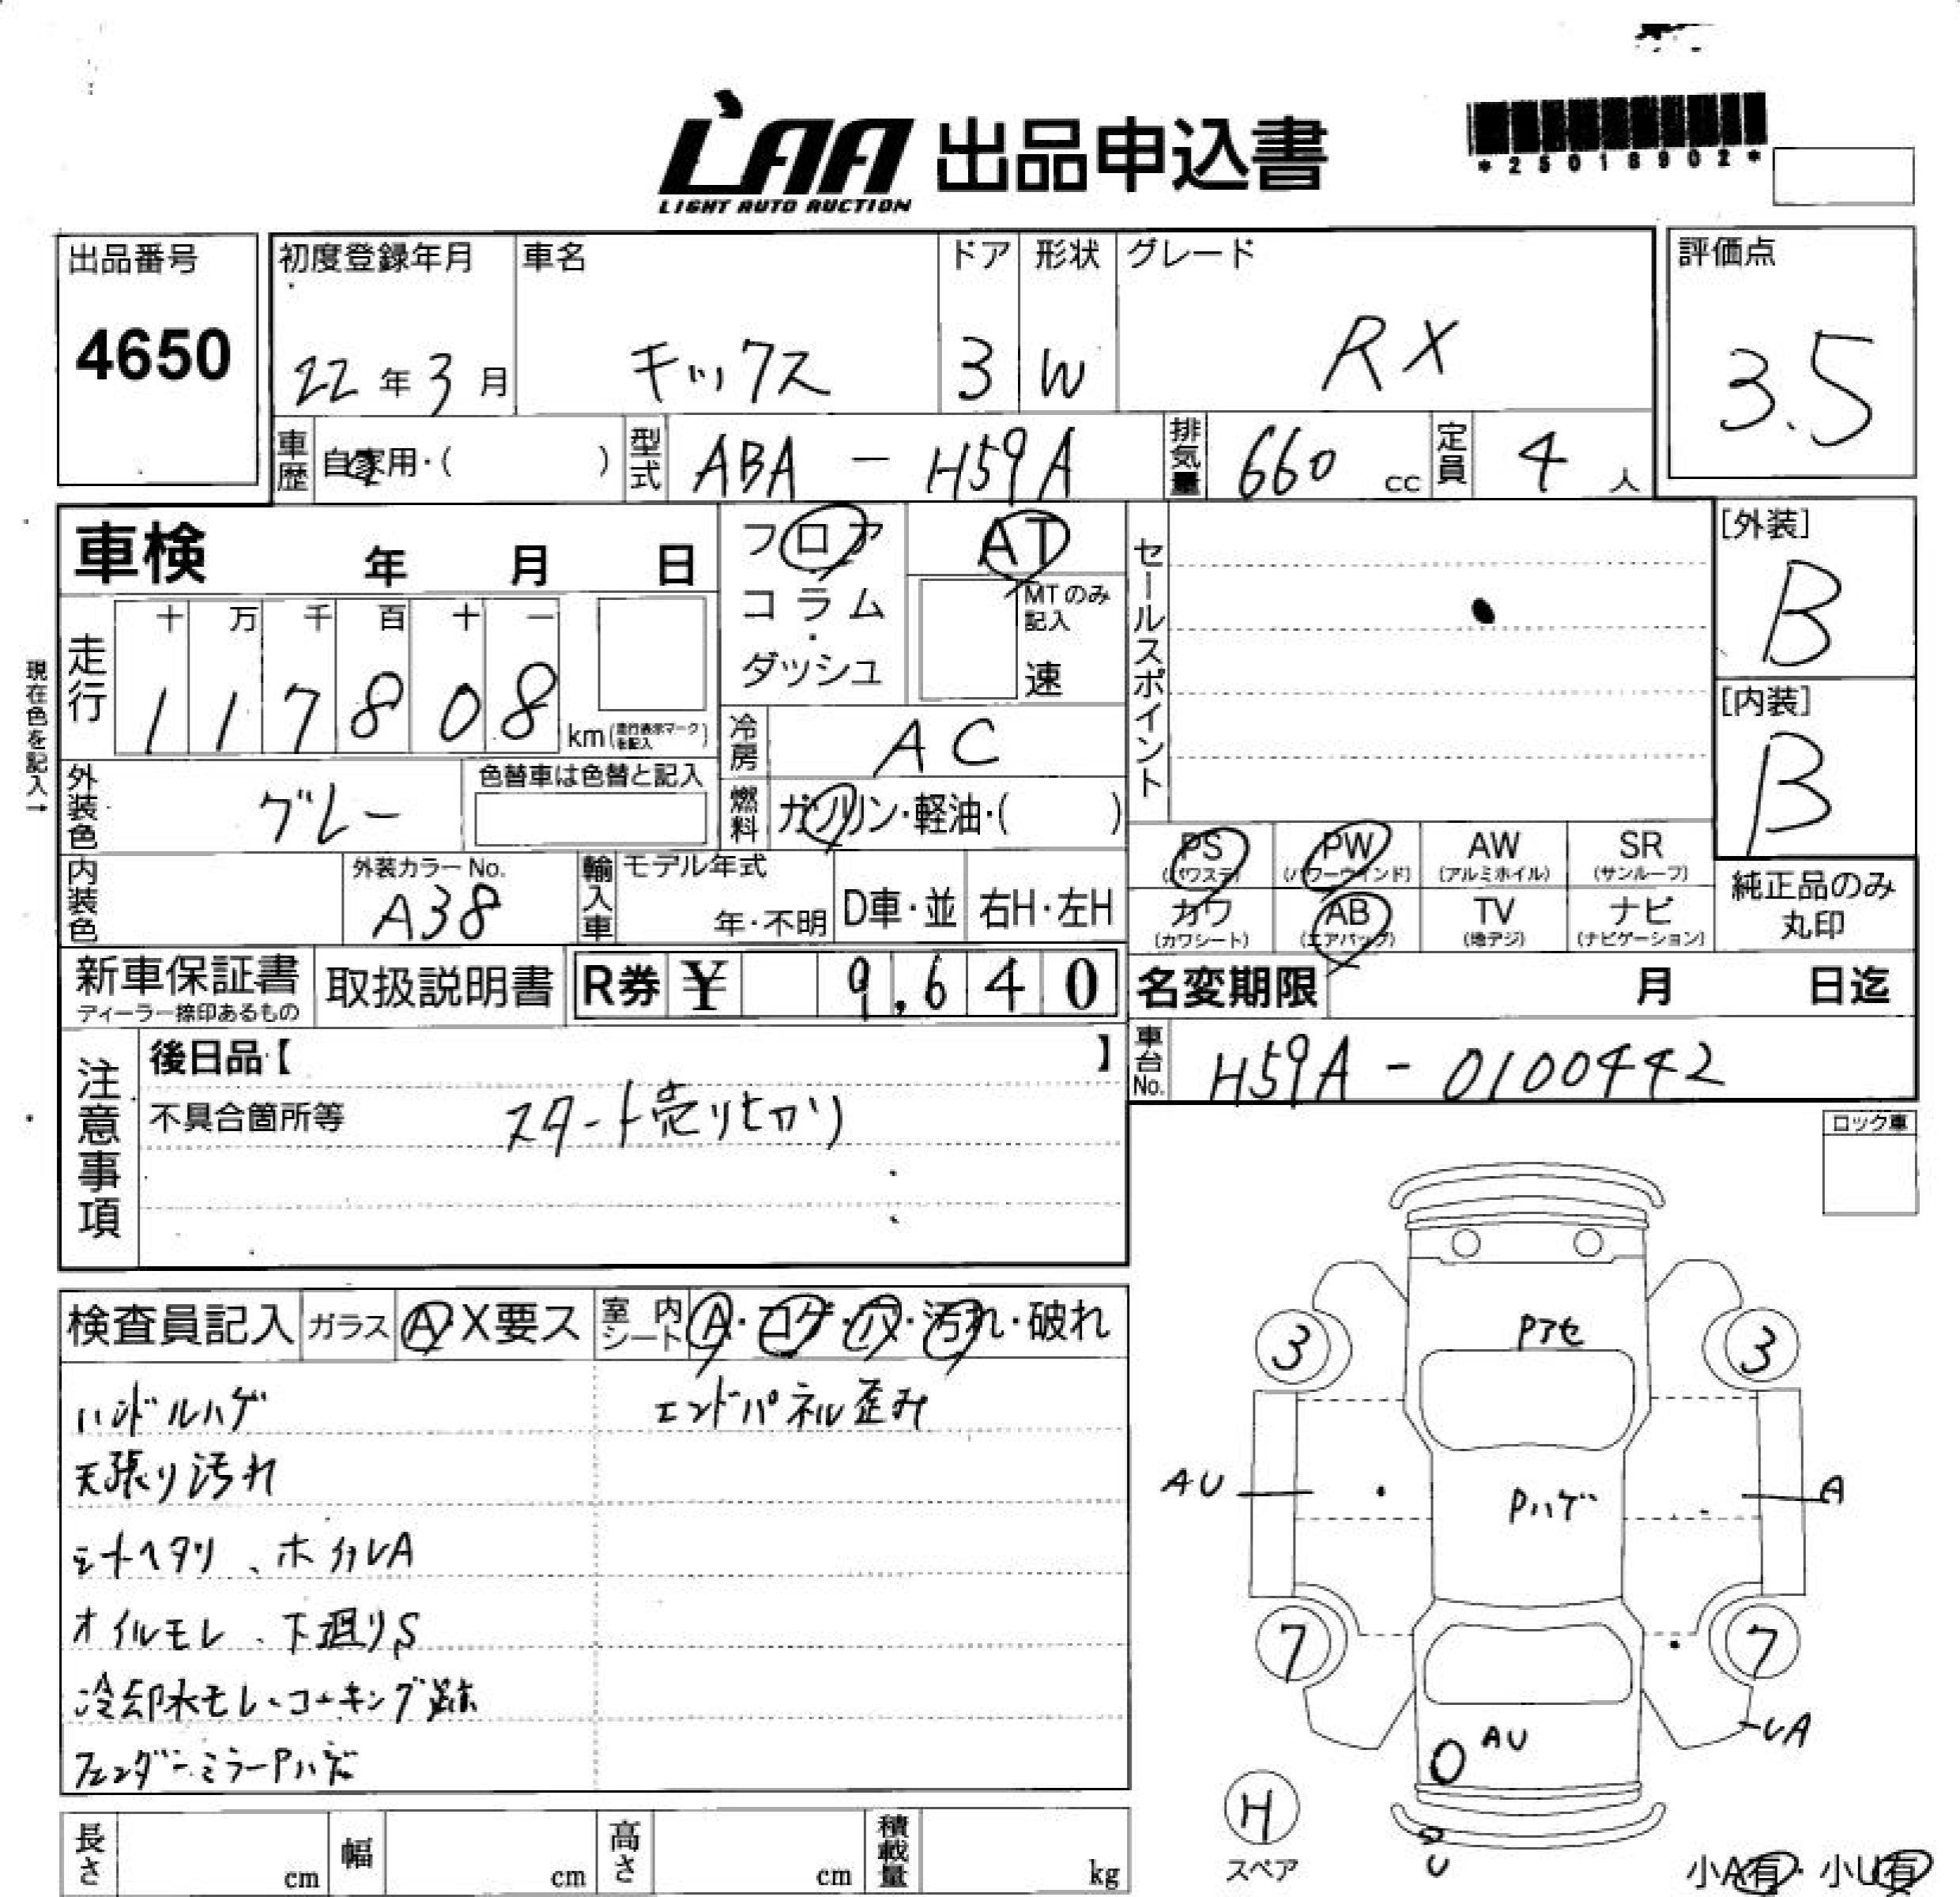 LAA 出品申込書
LIGHT AUTO AUCTION
*25018902*
出品番号
4650
初度登録年月
22年3月
車名
キックス
ドア
3
形状
W
グレード
RX
評価点
3.5
車歴 自家用・( )
型式 ABA - H59A
排気量 660 cc
定員 4 人
車検 年 月 日
フロア
コラム
・
ダッシュ
AT
MTのみ
記入
速
セールスポイント
[外装]
B
[内装]
B
現在色を記入→
走行
十 万 千 百 十 一
1 1 7 8 0 8
km(走行表示マークを記入)
冷房 AC
外装色 グレー
色替車は色替と記入
燃料 ガソリン・軽油・( )
内装色
外装カラーNo.
A38
輸入車
モデル年式
年・不明
D車・並
右H・左H
PS
(パワステ)
PW
(パワーウインド)
AW
(アルミホイル)
SR
(サンルーフ)
カワ
(カワシート)
AB
(エアバッグ)
TV
(地デジ)
ナビ
(ナビゲーション)
純正品のみ
丸印
新車保証書
ディーラー捺印あるもの
取扱説明書
R券 ¥ 9,640
名変期限 月 日迄
車台No. H59A - 0100442
注意事項
後日品【 】
不具合箇所等 スタート売り切り
ロック車
検査員記入
ガラス A X要ス
室内シート A・コゲ・穴・汚れ・破れ
ハンドルハゲ
エンドパネル歪み
天張り汚れ
シートヘタリ、ホイルA
オイルモレ、下廻りS
冷却水モレ、コーキング跡
フェンダーミラーPハゲ
Pアセ
3 3
AU
Pハゲ
A
7 7
AU
A
H
スペア
U
小A有・小U有
長さ cm
幅 cm
高さ cm
積載量 kg